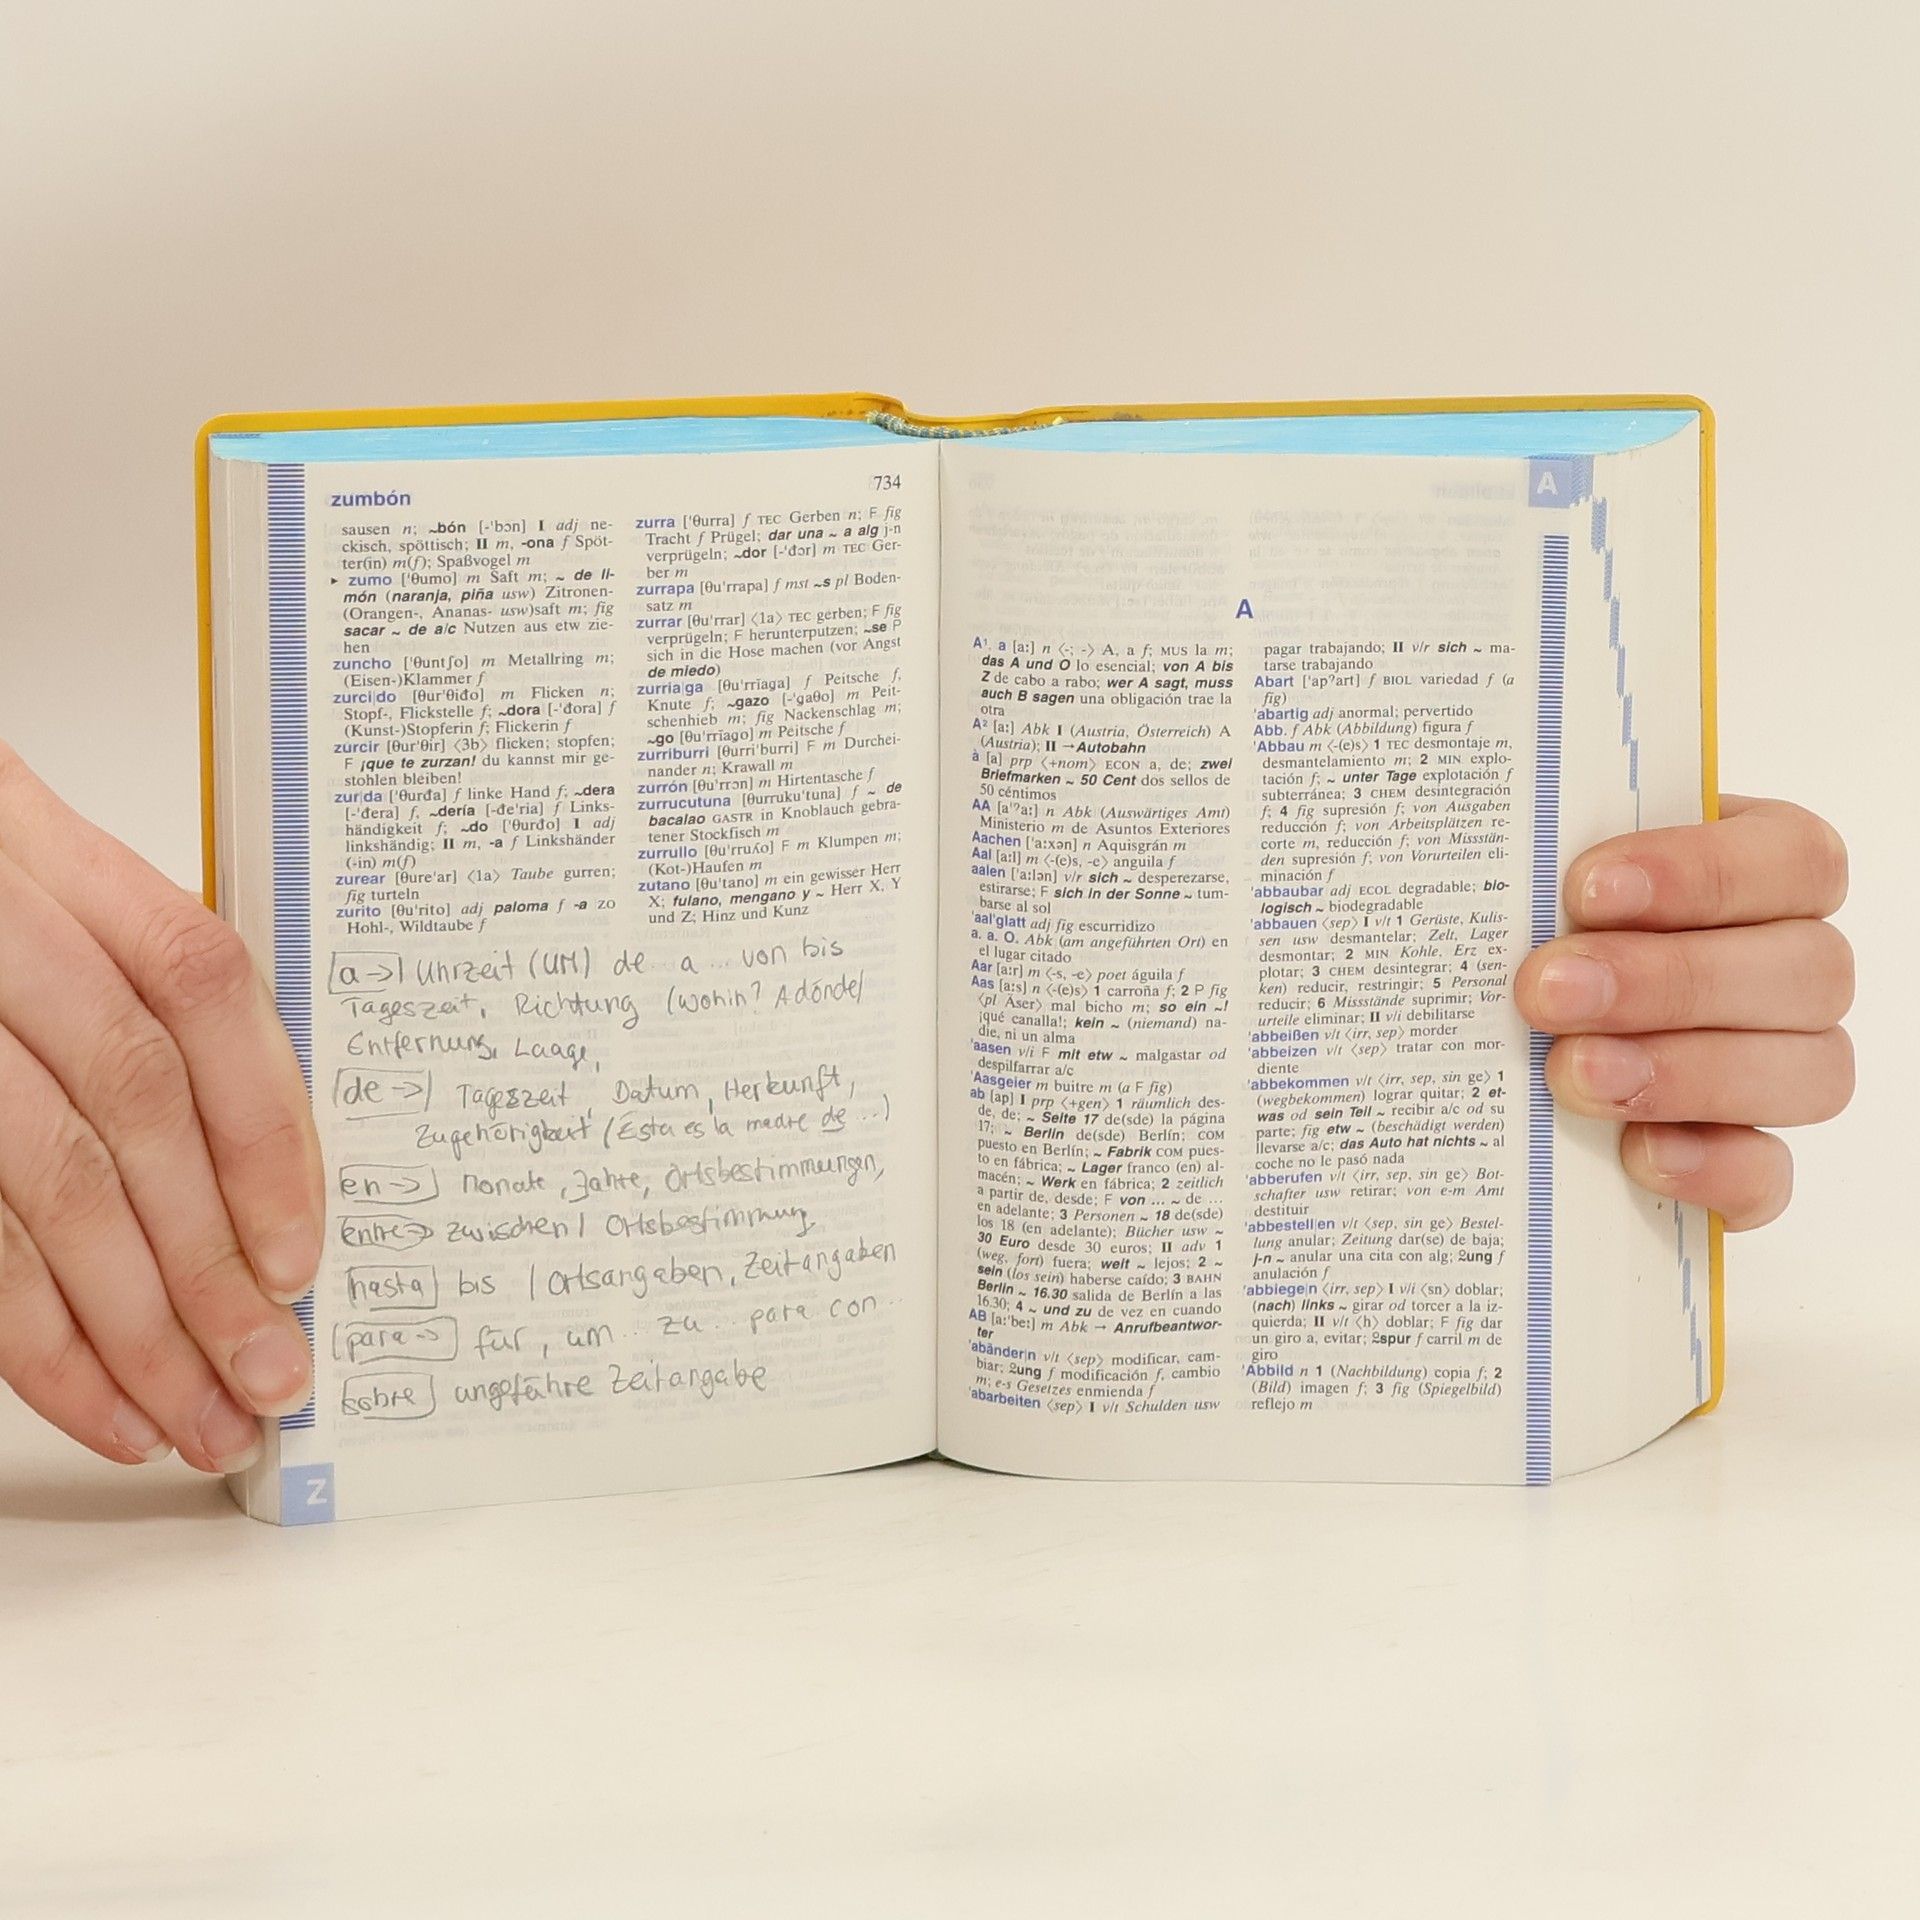 zumbón
734
sausen n; ~bón [-'bɔn] I adj ne-
ckisch, spöttisch; II m, -ona f Spöt-
ter(in) m(f); Spaßvogel m
▸ zumo ['θumo] m Saft m; ~ de li-
món (naranja, piña usw) Zitronen-
(Orangen-, Ananas- usw)saft m; fig
sacar ~ de a/c Nutzen aus etw zie-
hen
zuncho ['θuntʃo] m Metallring m;
(Eisen-)Klammer f
zurci|do [θur'θiđo] m Flicken n;
Stopf-, Flickstelle f; ~dora [-'đora] f
(Kunst-)Stopferin f; Flickerin f
zurcir [θur'θir] ⟨3b⟩ flicken; stopfen;
F ¡que te zurzan! du kannst mir ge-
stohlen bleiben!
zur|da ['θurđa] f linke Hand f; ~dera
[-'đera] f, ~dería [-đe'ria] f Links-
händigkeit f; ~do ['θurđo] I adj
linkshändig; II m, -a f Linkshänder
(-in) m(f)
zurear [θure'ar] ⟨1a⟩ Taube gurren;
fig turteln
zurito [θu'rito] adj paloma f -a ZO
Hohl-, Wildtaube f
zurra ['θurra] f TEC Gerben n; F fig
Tracht f Prügel; dar una ~ a alg j-n
verprügeln; ~dor [-'đɔr] m TEC Ger-
ber m
zurrapa [θu'rrapa] f mst ~s pl Boden-
satz m
zurrar [θu'rrar] ⟨1a⟩ TEC gerben; F fig
verprügeln; F herunterputzen; ~se P
sich in die Hose machen (vor Angst
de miedo)
zurria|ga [θu'rrĭaga] f Peitsche f,
Knute f; ~gazo [-'gaθo] m Peit-
schenhieb m; fig Nackenschlag m;
~go [θu'rrĭago] m Peitsche f
zurriburri [θurri'burri] F m Durchei-
nander n; Krawall m
zurrón [θu'rrɔn] m Hirtentasche f
zurrucutuna [θurruku'tuna] f ~ de
bacalao GASTR in Knoblauch gebra-
tener Stockfisch m
zurrullo [θu'rruʎo] F m Klumpen m;
(Kot-)Haufen m
zutano [θu'tano] m ein gewisser Herr
X; fulano, mengano y ~ Herr X, Y
und Z; Hinz und Kunz
a -> Uhrzeit (UM) de .. a ... von bis
Tageszeit, Richtung (wohin? Adónde)
Entfernung, Laage,
de -> Tageszeit, Datum, Herkunft,
Zugehörigkeit (Esta es la madre de ...)
en -> Monate, Jahre, Ortsbestimmungen,
entre -> zwischen / Ortsbestimmung
hasta bis / Ortsangaben, Zeitangaben
para -> für, um .. zu .. para con ..
sobre ungefähre Zeitangabe
Z
A
A
A¹, a [aː] n ⟨-; -⟩ A, a f; MUS la m;
das A und O lo esencial; von A bis
Z de cabo a rabo; wer A sagt, muss
auch B sagen una obligación trae la
otra
A² [aː] Abk I (Austria, Österreich) A
(Austria); II →Autobahn
à [a] prp ⟨+nom⟩ ECON a, de; zwei
Briefmarken ~ 50 Cent dos sellos de
50 céntimos
AA [a'ʔaː] n Abk (Auswärtiges Amt)
Ministerio m de Asuntos Exteriores
Aachen ['aːxən] n Aquisgrán m
Aal [aːl] m ⟨-(e)s, -e⟩ anguila f
aalen ['aːlən] v/r sich ~ desperezarse,
estirarse; F sich in der Sonne ~ tum-
barse al sol
'aal'glatt adj fig escurridizo
a. a. O. Abk (am angeführten Ort) en
el lugar citado
Aar [aːr] m ⟨-s, -e⟩ poet águila f
Aas [aːs] n ⟨-(e)s⟩ 1 carroña f; 2 P fig
⟨pl Äser⟩ mal bicho m; so ein ~!
¡qué canalla!; kein ~ (niemand) na-
die, ni un alma
'aasen v/i F mit etw ~ malgastar od
despilfarrar a/c
'Aasgeier m buitre m (a F fig)
ab [ap] I prp ⟨+gen⟩ 1 räumlich des-
de, de; ~ Seite 17 de(sde) la página
17; ~ Berlin de(sde) Berlín; COM
puesto en Berlín; ~ Fabrik COM pues-
to en fábrica; ~ Lager franco (en) al-
macén; ~ Werk en fábrica; 2 zeitlich
a partir de, desde; F von ... ~ de ...
en adelante; 3 Personen ~ 18 de(sde)
los 18 (en adelante); Bücher usw ~
30 Euro desde 30 euros; II adv 1
(weg, fort) fuera; weit ~ lejos; 2 ~
sein (los sein) haberse caído; 3 BAHN
Berlin ~ 16.30 salida de Berlín a las
16.30; 4 ~ und zu de vez en cuando
AB [aː'beː] m Abk → Anrufbeantwor-
ter
'abänder|n v/t ⟨sep⟩ modificar, cam-
biar; ℒung f modificación f, cambio
m; e-s Gesetzes enmienda f
'abarbeiten ⟨sep⟩ I v/t Schulden usw
pagar trabajando; II v/r sich ~ ma-
tarse trabajando
Abart ['apʔart] f BIOL variedad f (a
fig)
'abartig adj anormal; pervertido
Abb. f Abk (Abbildung) figura f
'Abbau m ⟨-(e)s⟩ 1 TEC desmontaje m,
desmantelamiento m; 2 MIN explo-
tación f; ~ unter Tage explotación f
subterránea; 3 CHEM desintegración
f; 4 fig supresión f; von Ausgaben
reducción f; von Arbeitsplätzen re-
corte m, reducción f; von Missstän-
den supresión f; von Vorurteilen eli-
minación f
'abbaubar adj ECOL degradable; bio-
logisch ~ biodegradable
'abbauen ⟨sep⟩ I v/t 1 Gerüste, Kulis-
sen usw desmantelar; Zelt, Lager
desmontar; 2 MIN Kohle, Erz ex-
plotar; 3 CHEM desintegrar; 4 (sen-
ken) reducir, restringir; 5 Personal
reducir; 6 Missstände suprimir; Vor-
urteile eliminar; II v/i debilitarse
'abbeißen v/t ⟨irr, sep⟩ morder
'abbeizen v/t ⟨sep⟩ tratar con mor-
diente
'abbekommen v/t ⟨irr, sep, sin ge⟩ 1
(wegbekommen) lograr quitar; 2 et-
was od sein Teil ~ recibir a/c od su
parte; fig etw ~ (beschädigt werden)
llevarse a/c; das Auto hat nichts ~ al
coche no le pasó nada
'abberufen v/t ⟨irr, sep, sin ge⟩ Bot-
schafter usw retirar; von e-m Amt
destituir
'abbestell|en v/t ⟨sep, sin ge⟩ Bestel-
lung anular; Zeitung dar(se) de baja;
j-n ~ anular una cita con alg; ℒung f
anulación f
'abbiege|n ⟨irr, sep⟩ I v/i ⟨sn⟩ doblar;
(nach) links ~ girar od torcer a la iz-
quierda; II v/t ⟨h⟩ doblar; F fig dar
un giro a, evitar; ℒspur f carril m de
giro
'Abbild n 1 (Nachbildung) copia f; 2
(Bild) imagen f; 3 fig (Spiegelbild)
reflejo m